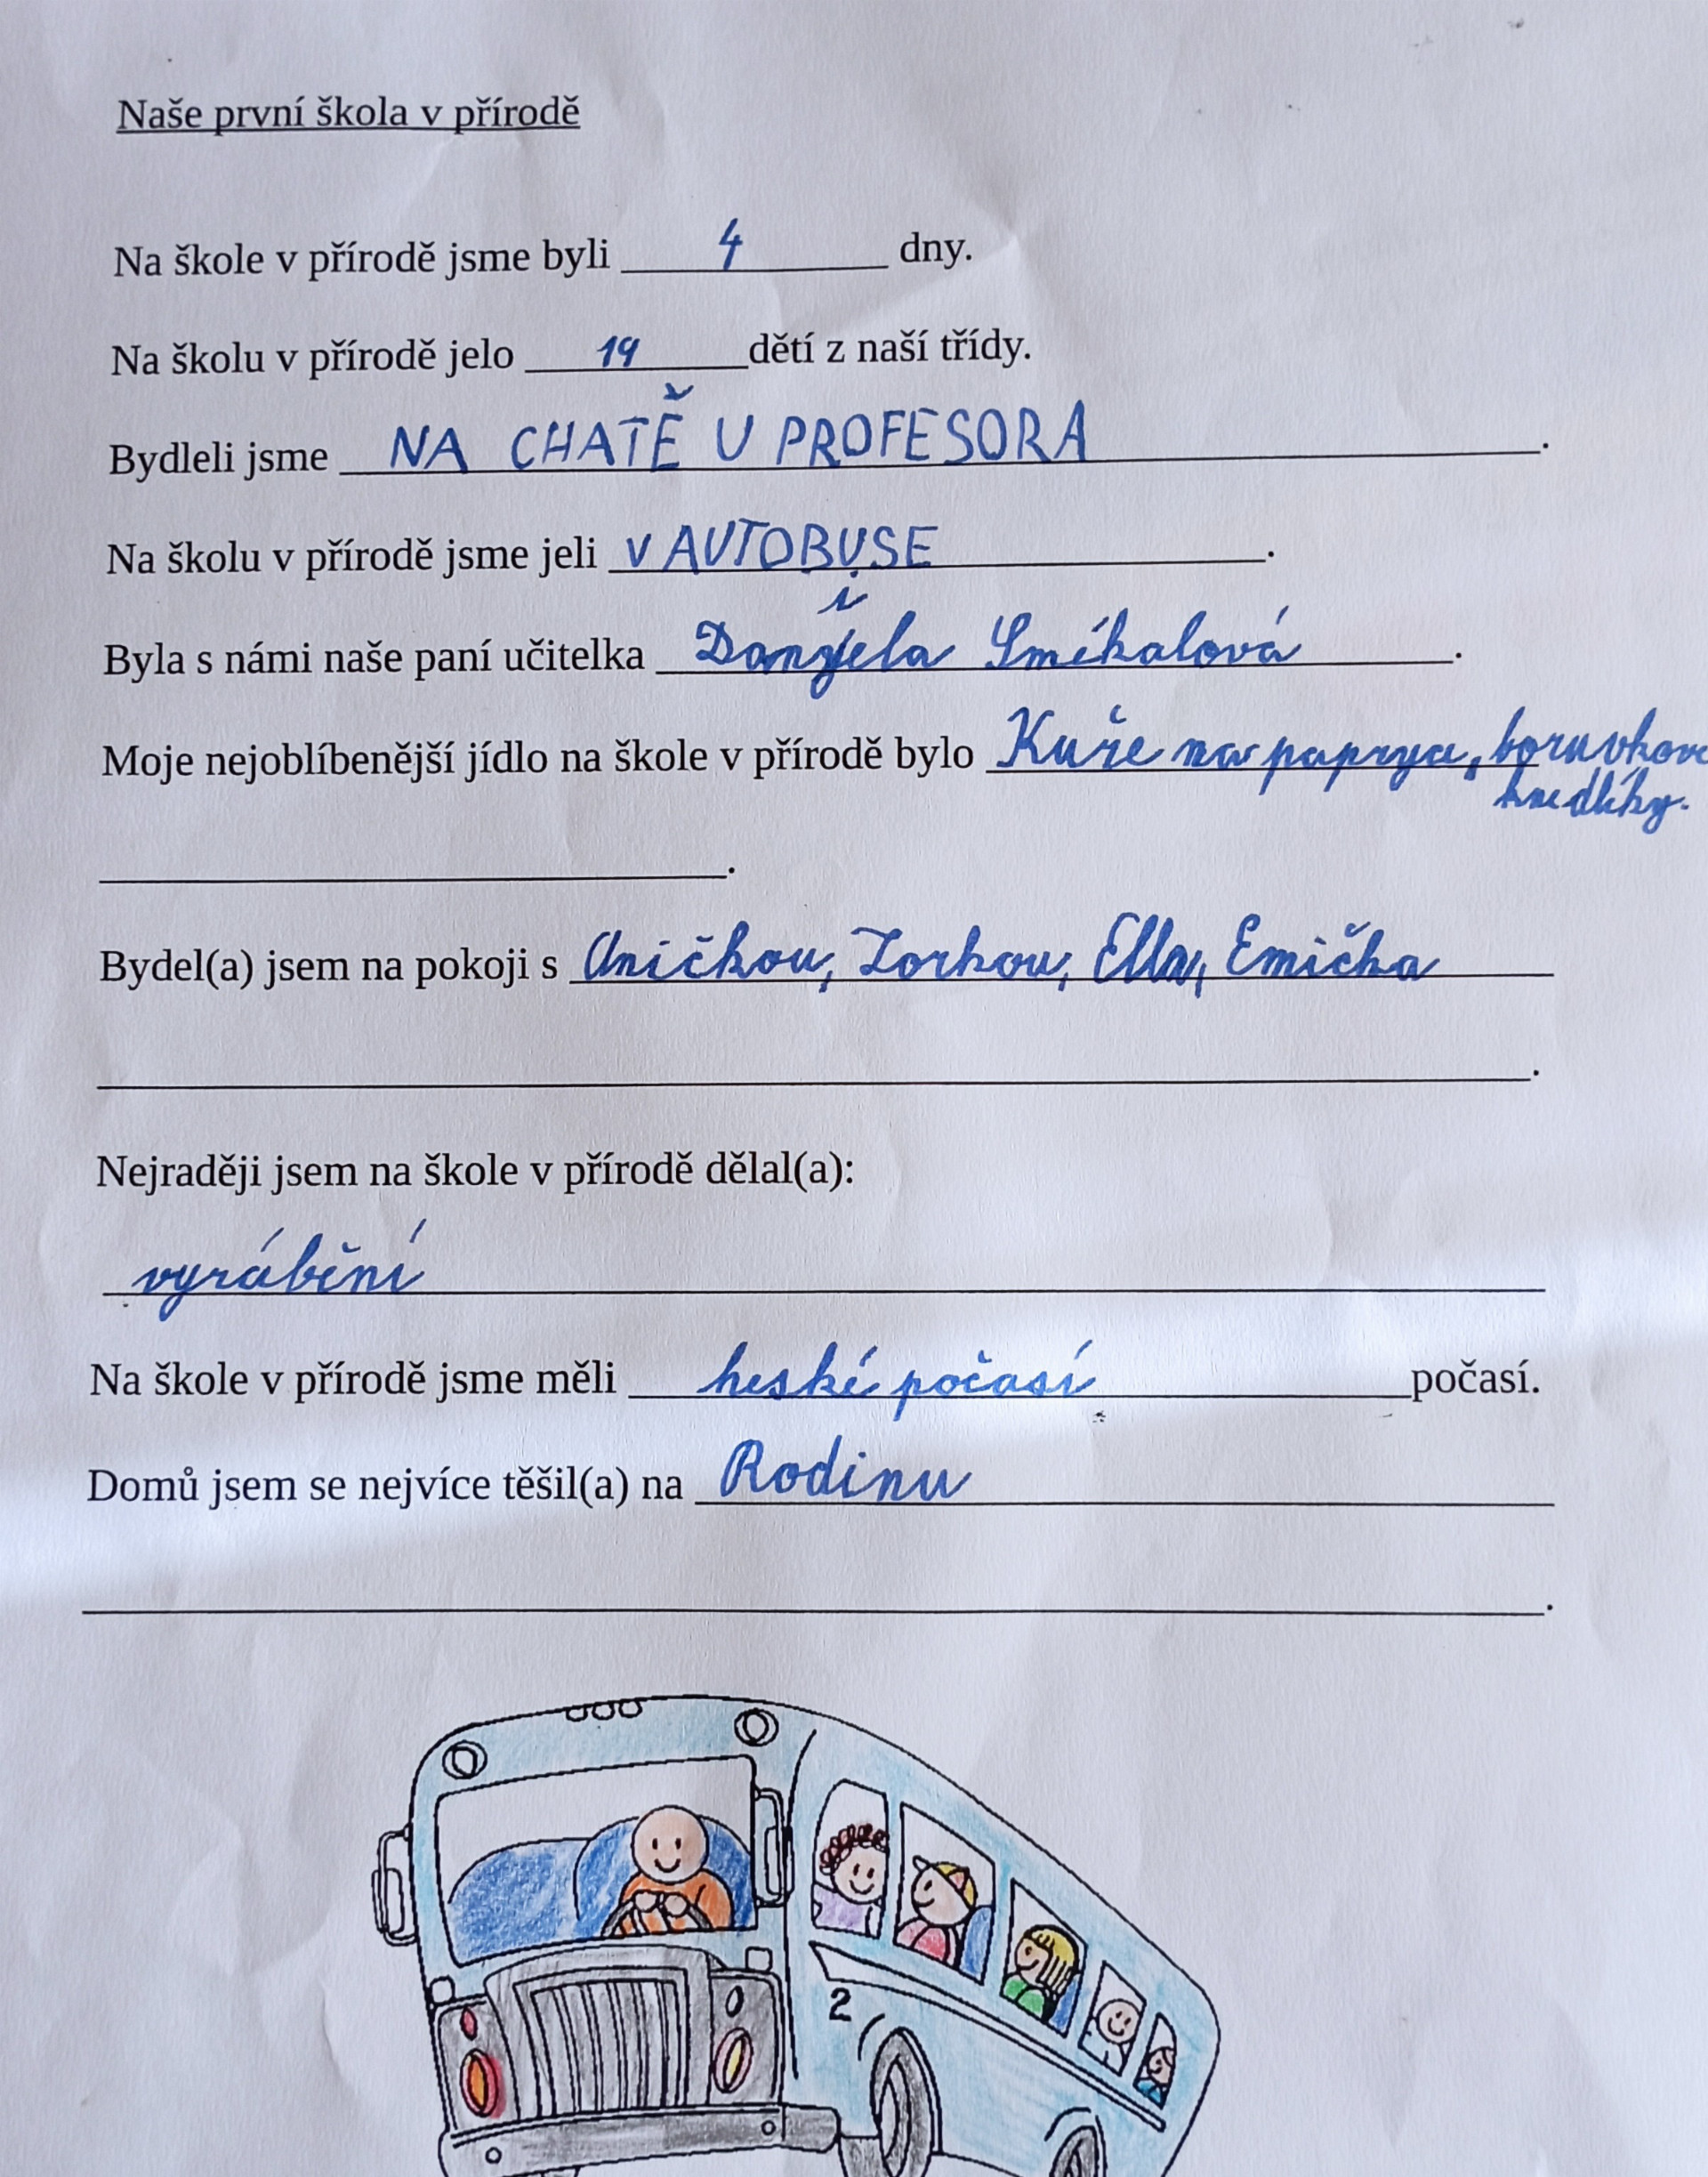 Naše první škola v přírodě
Na škole v přírodě jsme byli 4 dny.
Na školu v přírodě jelo 19 dětí z naší třídy.
Bydleli jsme NA CHATĚ U PROFESORA.
Na školu v přírodě jsme jeli V AUTOBUSE.
Byla s námi naše paní učitelka Smíkalová.
Moje nejoblíbenější jídlo na škole v přírodě bylo Kuře na papryce, boruvkove
knedlíky.
Bydel(a) jsem na pokoji s Aničkou, Zorkou, Ella, Emička
Nejraději jsem na škole v přírodě dělal(a):
vyrábění
Na škole v přírodě jsme měli heské počasí počasí.
Domů jsem se nejvíce těšil(a) na Rodinu
2